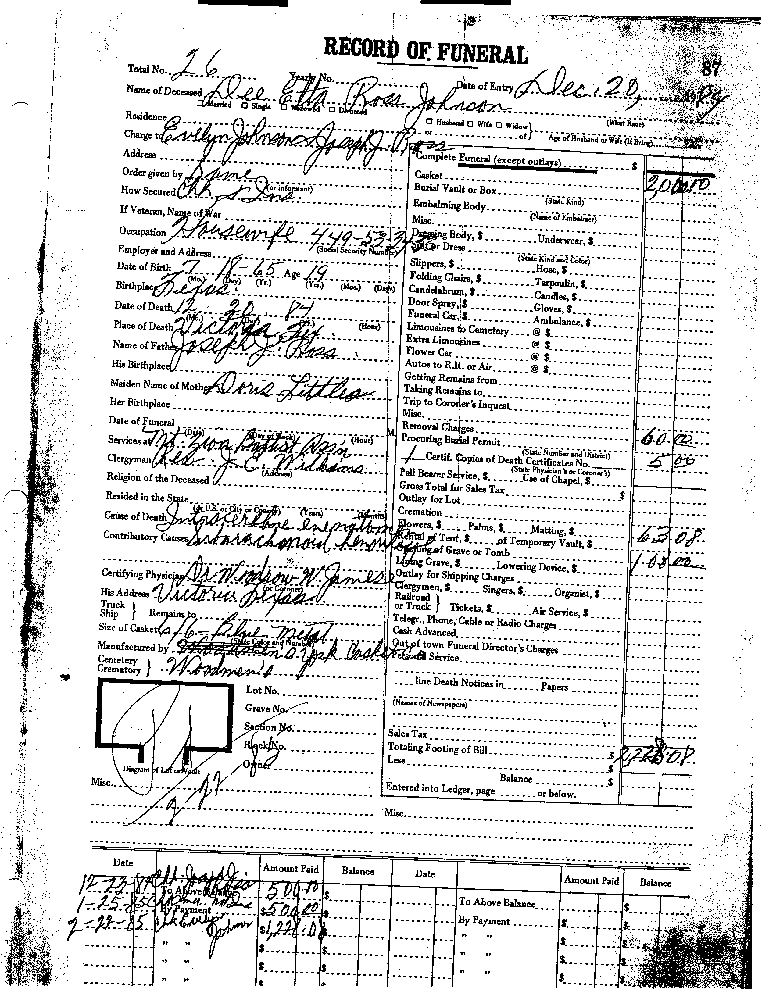 RECORD OF FUNERAL
87
Total No. 26 Yearly No. Date of Entry Dec. 20, 1984
Name of Deceased Dee Etta Ross Johnson
Married Single Widowed Divorced (What Race)
Residence Husband Wife Widow of Age of Husband or Wife (if living)
Charge to Evelyn Johnson & Joseph J. Ross
Address
Order given by Same
(or informant)
How Secured Chk & Ins.
If Veteran, Name of War
Occupation Housewife 449-53-
(Social Security Number)
Employer and Address
Date of Birth 7 18-65 Age 19
(Mo.) (Day) (Yr.) (Yrs.) (Mos.) (Days)
Birthplace Texas
Date of Death 12 20 84
(Mo.) (Hour)
Place of Death Victoria
Name of Father Joseph J. Ross
His Birthplace
Maiden Name of Mother Doris Littles
Her Birthplace
Date of Funeral
(Date) (Day of Week) (Hour) M.
Services at Mt. Zion Baptist Ass'n
Clergyman Rev. J. C. Williams
(Address)
Religion of the Deceased
Resided in the State
(In U.S. or City or County) (Years) (Months)
Cause of Death
Contributory Causes Subarachnoid
Certifying Physician Dr. W. James
(or Coroner)
His Address Victoria Texas
Truck
Ship } Remains to
Size of Casket 6/6 - Blue Metal
(State Color and Number)
Manufactured by York Casket
Cemetery
Crematory } Woodmen's
Lot No.
Grave No.
Section No.
Block No.
Owner
Diagram of Lot or Vault
Misc.
Complete Funeral (except outlays) $
Casket 2,000.00
Burial Vault or Box
(State Kind)
Embalming Body
(Name of Embalmer)
Misc.
Dressing Body, $ Underwear, $
Suit or Dress
(State Kind and Color)
Slippers, $ Hose, $
Folding Chairs, $ Tarpaulin, $
Candelabrum, $ Candles, $
Door Spray, $ Gloves, $
Funeral Car, $ Ambulance, $
Limousines to Cemetery @ $
Extra Limousines @ $
Flower Car @ $
Autos to R.R. or Air @ $
Getting Remains from
Taking Remains to
Trip to Coroner's Inquest
Misc.
Removal Charges 60.00
Procuring Burial Permit
(State Number and District)
1 Certif. Copies of Death Certificates No. 5.00
(State Physician's or Coroner's)
Pall Bearer Service, $ Use of Chapel, $
Gross Total for Sales Tax $
Outlay for Lot
Cremation
Flowers, $ Palms, $ Matting, $
Rental of Tent, $ of Temporary Vault, $
Opening of Grave or Tomb
Lining Grave, $ Lowering Device, $
Outlay for Shipping Charges
Clergymen, $ Singers, $ Organist, $
Railroad
or Truck } Tickets, $ Air Service, $
Telegr., Phone, Cable or Radio Charges
Cash Advanced
Out of town Funeral Director's Charges
Service
line Death Notices in Papers
(Names of Newspapers)
Sales Tax
Totaling Footing of Bill $
Less $
Balance $
Entered into Ledger, page or below.
Misc.
Date Amount Paid Balance Date Amount Paid Balance
12-23-84 Chk. Joseph J. 500.00
To Above Balance $ To Above Balance $
1-25-85 $500.00
By Payment By Payment $
2-22-85 Chk Evelyn Johnson $1,228.08